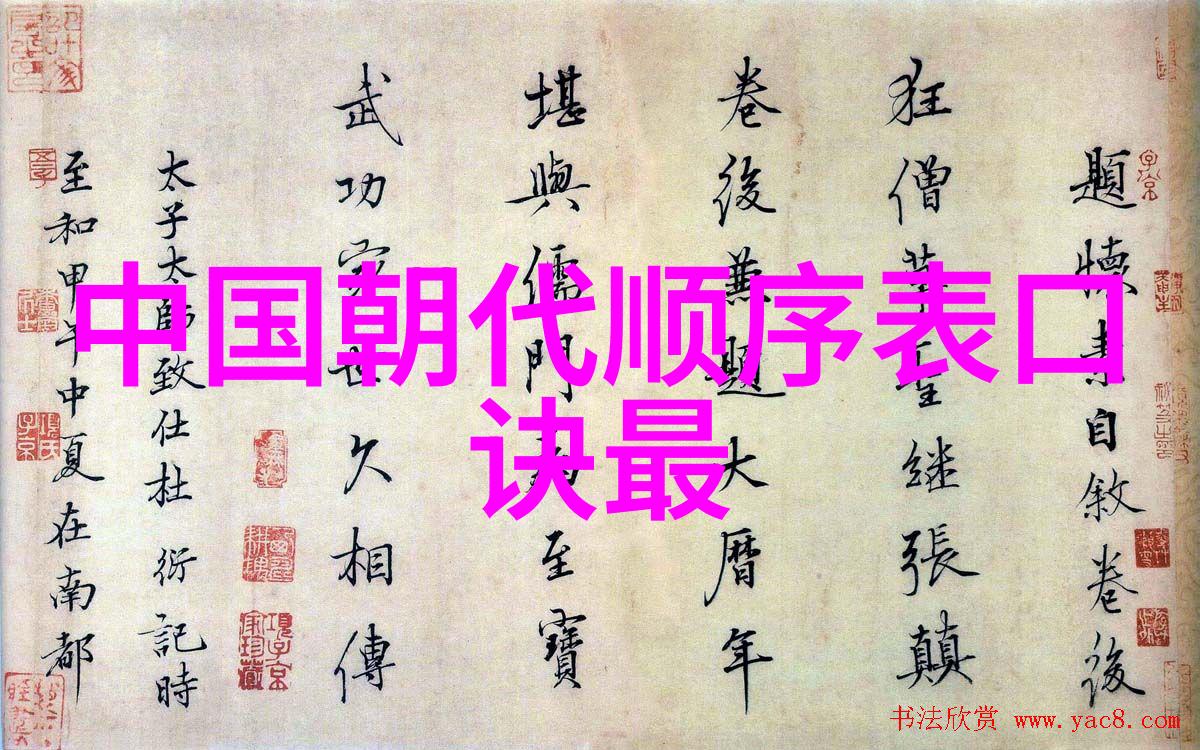 中国朝代顺序表口
诀最
題懷素自敘卷後
狂僧草聖繼張顛
卷後兼題大曆年
堪與儒門為至寶
武功家世久相傳
太子太師致仕杜衍記時
至和甲午中夏在南都
书法欣赏 www.yac8.com